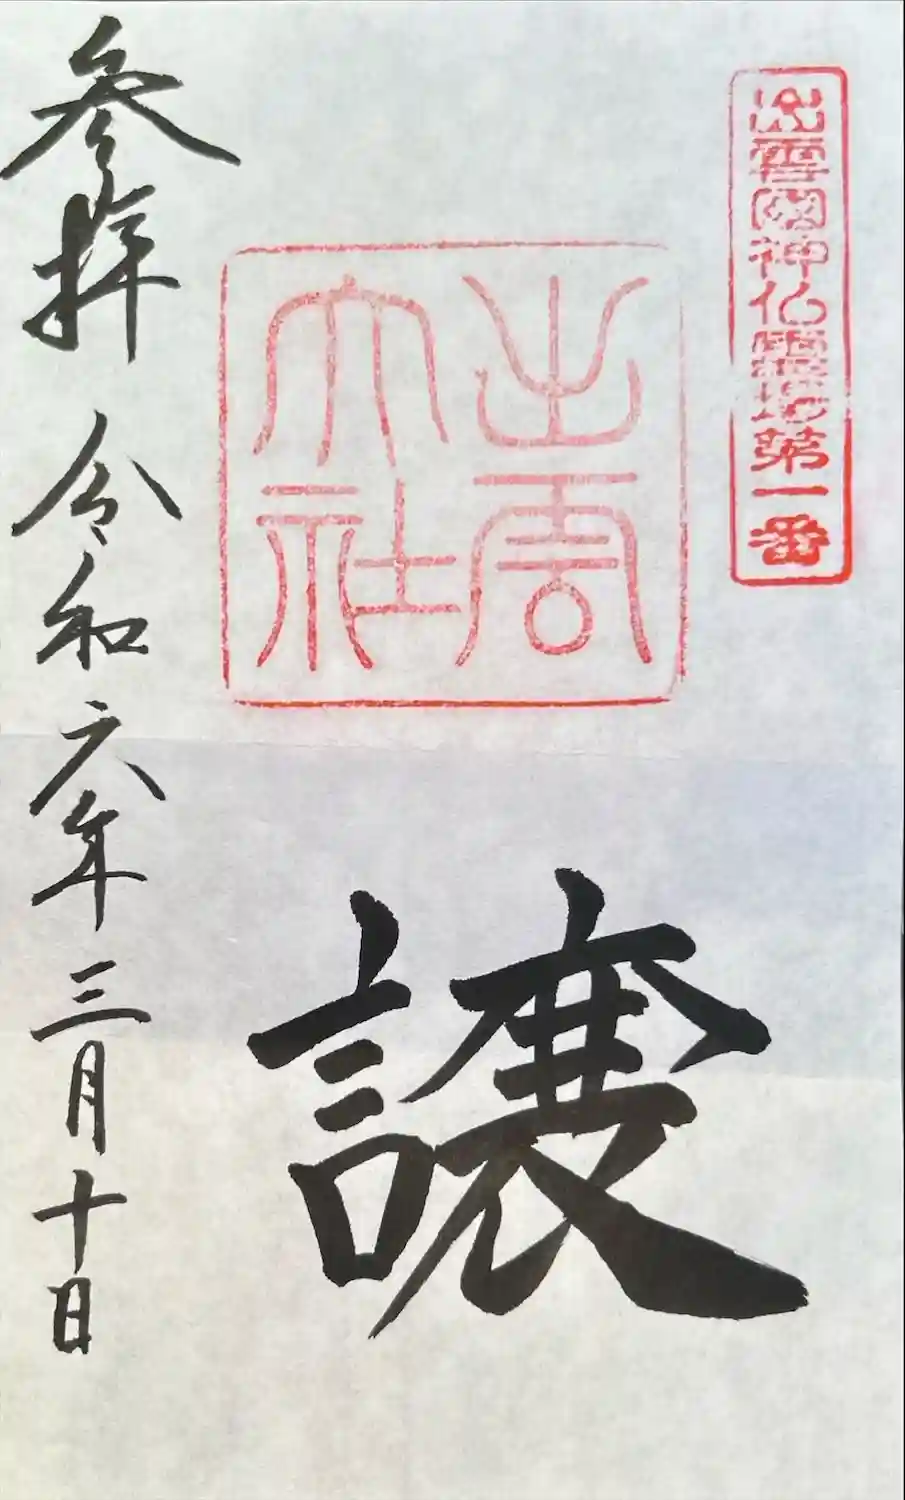 出雲國神仏靈場第一番
出雲
大社
譲
参拝 令和六年三月十日